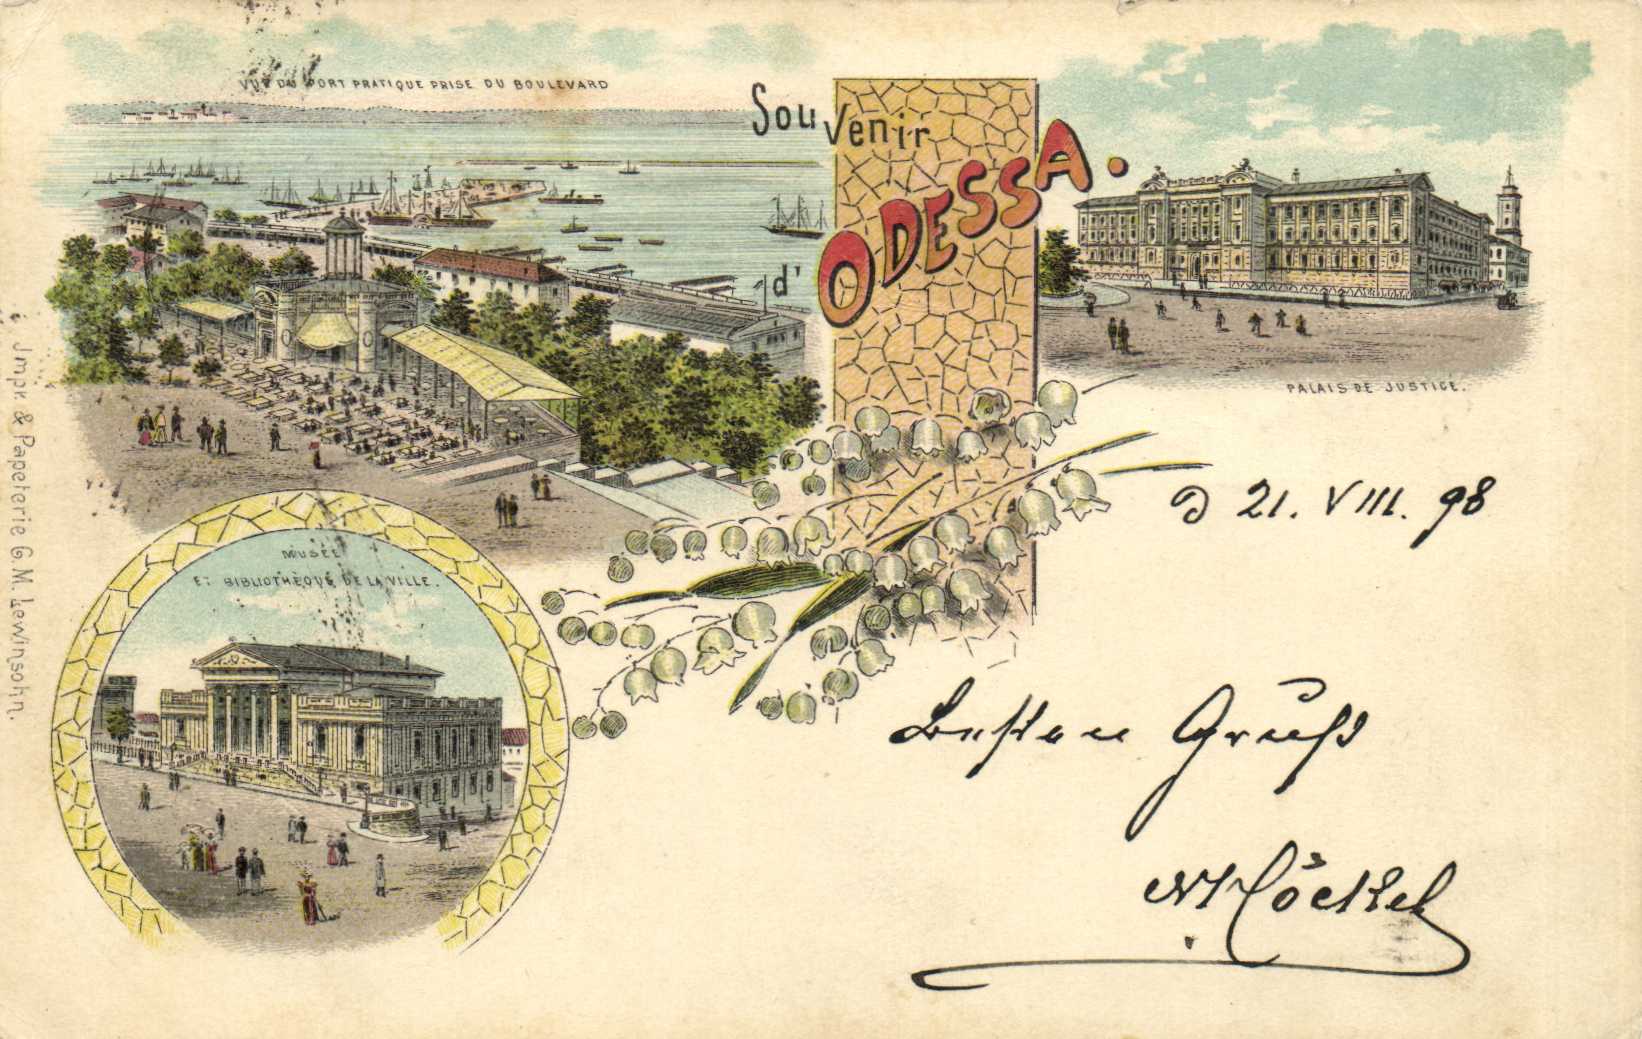 VUE DU PORT PRATIQUE PRISE DU BOULEVARD
Souvenir
d'ODESSA.
PALAIS DE JUSTICE.
MUSÉE
ET BIBLIOTHÈQUE DE LA VILLE.
Impr & Papeterie G.M. Lewinsohn.
21. VIII. 98
Besten Gruß